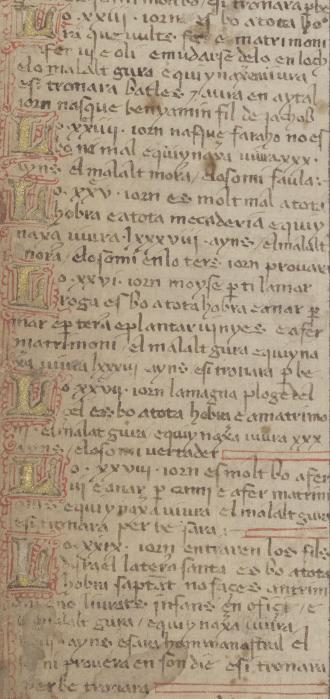 Lo .xxiii. iorn es bo a tota bo
ra que vulls fer e matrimoni
fer vi e oli e mudarse de lo en loch
e lo malalt gura e qui y naxera viura
e si tronara batles y aura en aytal
iorn nasque benyamin fil de jacob
Lo .xxiiii. iorn nasque faraho no es
bo ne mal e qui y naxa viura .xxx.
ayns el malalt mora / e lo somi faula:
Lo .xxv. iorn es molt mal a tota
hobra e a tota mecaderia e qui y
naxa viura .lxxxviii. ayns / el malalt
mora / e lo somi en lo ters iorn provara
Lo .xxvi. iorn moyse parti la mar
roga es bo a tota hobra e anar per
mar e per tera e plantar vinyes e afer
matrimoni el malalt gura e qui y na
xa viura lxxxvii ayns e si tronara per be
Lo .xxvii. iorn la magna ploge del
cel es bo a tota hobra e a matrimo
ni el malat gura e qui y naxa viura xxx
ayns e lo somi vertader
Lo .xxviii. iorn es molt bo afer
vi e anar per cami e afer matrim
e qui y naxa viura el malalt gura
e si tronara per be sara
Lo .xxix. iorn entraren los fils
disrael la tera santa es bo a tota
hobra saptat no faces antrim
liurats infans en ofici / e
malalt gura / e qui y naxa viura
ayns e sara hom manastral el
somi provera en son die e si tronara
per be tronara